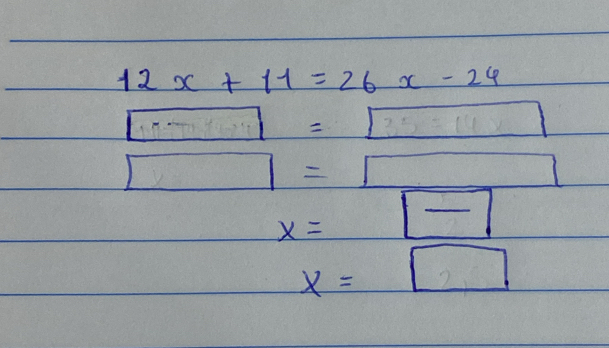 12 x + 11 = 26 x - 24
=
=
x = —
x =